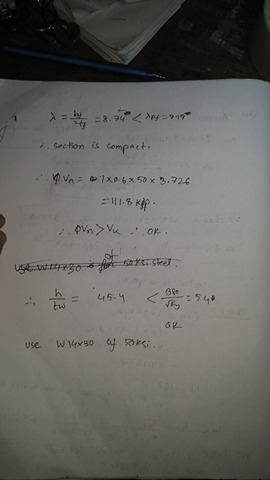 λ = bf/2tf = 8.74 < λpf = 9.19
∴ section is compact.
∴ ϕVn = 1 x 0.6 x 50 x 3.726
= 111.8 kip.
∴ ϕVn > Vu ∴ OK.
of
Use W14x30 50 ksi steel.
∴ h/tw = 45.4 < 380/√Fy = 54
OK
use W14x30 of 50ksi.